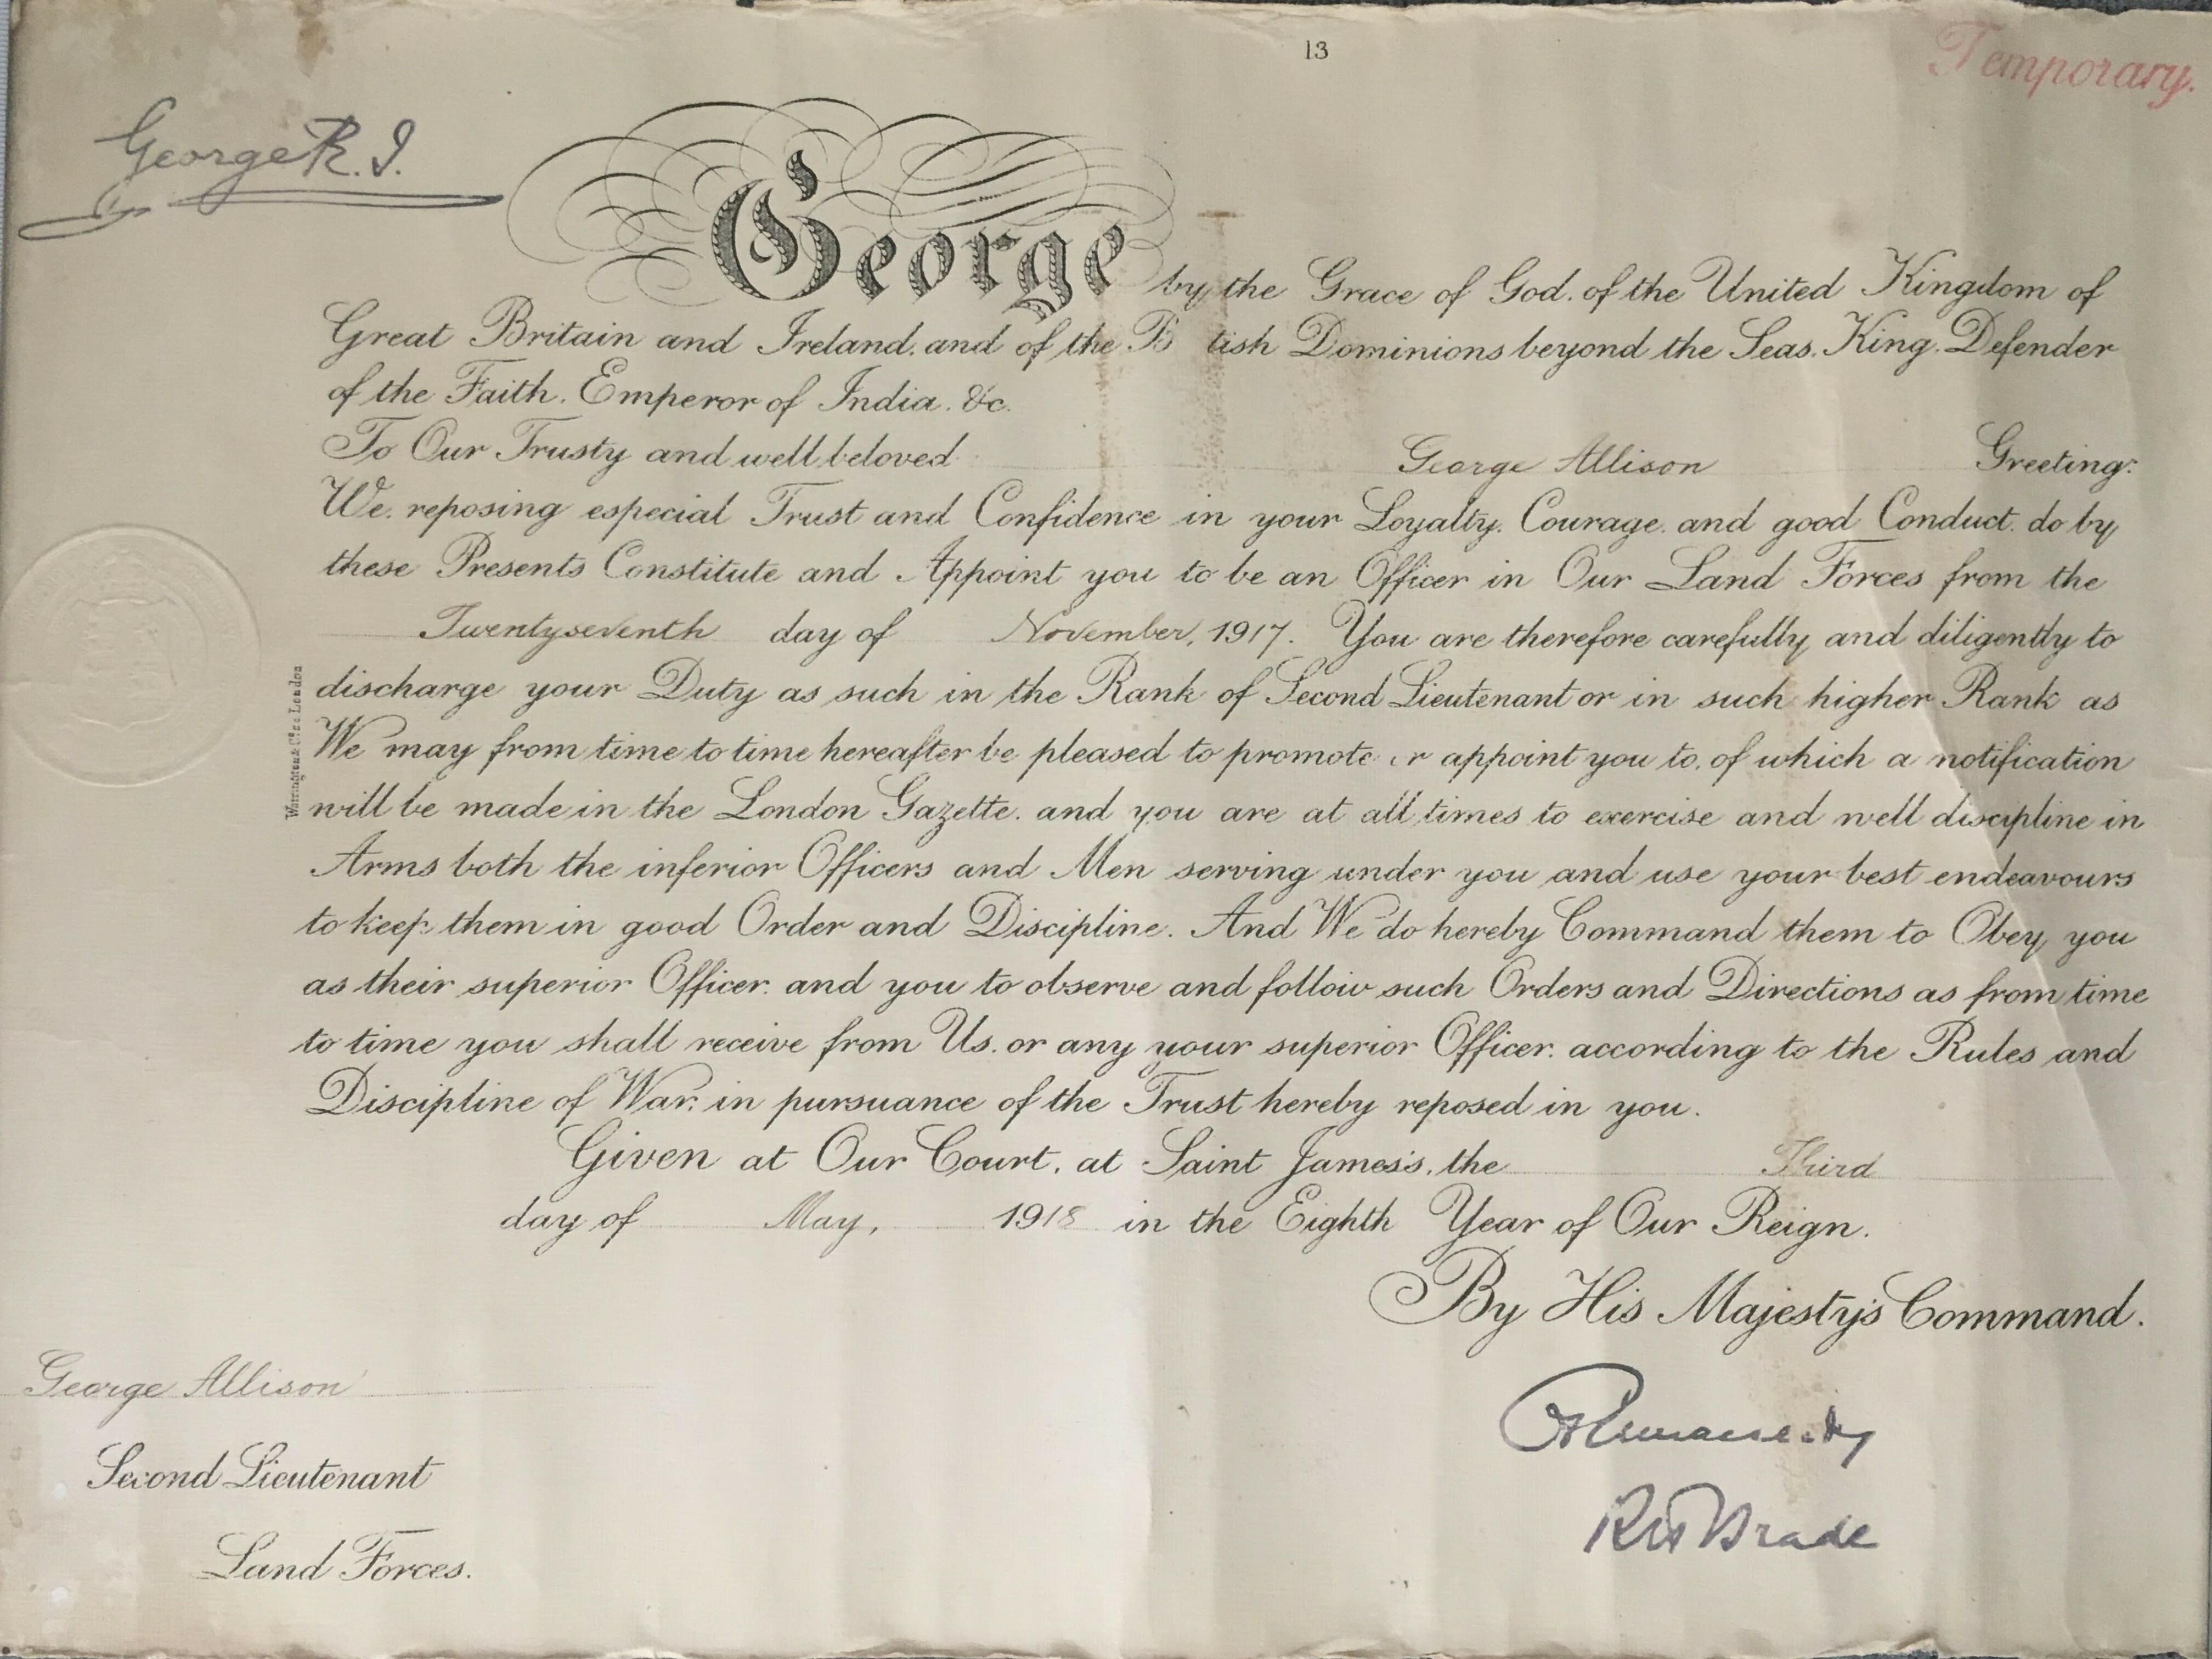 13
Temporary.
George R.I.
George by the Grace of God. of the United Kingdom of
Great Britain and Ireland. and of the B tish Dominions beyond the Seas. King. Defender
of the Faith. Emperor of India. &c.
To Our Trusty and well beloved George Allison Greeting:
We. reposing especial Trust and Confidence in your Loyalty. Courage. and good Conduct. do by
these Presents Constitute and Appoint you to be an Officer in Our Land Forces from the
Twentyseventh day of November, 1917. You are therefore carefully and diligently to
discharge your Duty as such in the Rank of Second Lieutenant or in such higher Rank as
We may from time to time hereafter be pleased to promote or appoint you to. of which a notification
will be made in the London Gazette. and you are at all times to exercise and well discipline in
Arms both the inferior Officers and Men serving under you and use your best endeavours
to keep them in good Order and Discipline. And We do hereby Command them to Obey you
as their superior Officer. and you to observe and follow such Orders and Directions as from time
to time you shall receive from Us. or any your superior Officer. according to the Rules and
Discipline of War. in pursuance of the Trust hereby reposed in you.
Given at Our Court. at Saint James's. the Third
day of May, 1918 in the Eighth Year of Our Reign.
By His Majesty's Command.
George Allison
Second Lieutenant
Land Forces.
RH Brade
London